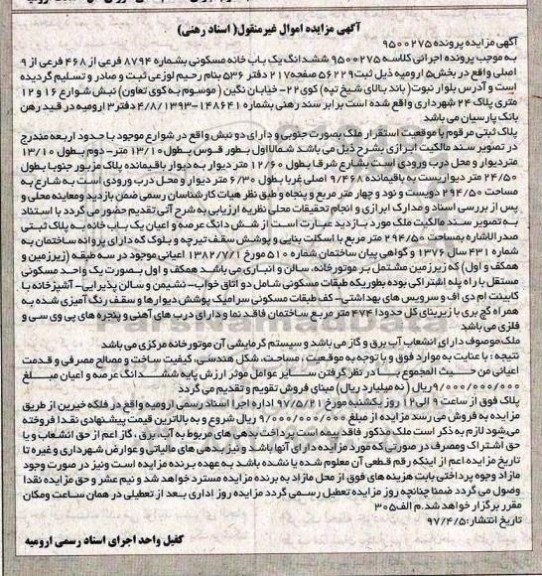 آگهی مزایده اموال غیرمنقول( اسناد رهنی)
آگهی مزایده پرونده ۹۵۰۰۲۷۵
به موجب پرونده اجرائی کلاسه ۹۵۰۰۲۷۵ ششدانگ یک باب خانه مسکونی بشماره ۸۷۹۴ فرعی از ۴۶۸ فرعی از ۹
اصلی واقع در بخش۵ ارومیه ذیل ثبت۵۶۲۲۹ صفحه۲۱۷ دفتر ۵۳۶ بنام رحیم لوزعی ثبت و صادر و تسلیم گردیده
است و آدرس بلوار نبوت( باند بالای شیخ تپه) کوی۲۲- خیابان نگین ( موسوم به کوی تعاون) نبش شوارع ۱۶ و ۱۲
متری پلاک ۲۴ شهرداری واقع شده است برابر سند رهنی بشماره ۱۴۸۶۴۱-۴/۸/۱۳۹۳ دفتر۳ ارومیه در قید رهن
بانک پارسیان می باشد
پلاک ثبتی مرقوم با موقعیت استقرار ملک بصورت جنوبی و دارای دو نبش واقع در شوارع موجود با حدود اربعه مندرج
در تصویر سند مالکیت ابرازی بشرح ذیل می باشد شمالا اول بطور قوس بطول۱۳/۱۰ متر- دوم بطول ۱۳/۱۰
متردیوار و محل درب ورودی است بشارع شرقا بطول ۱۲/۶۰ متر دیوار به دیوار باقیمانده پلاک مزبور جنوبا بطول
۲۴/۵۰ متر دیواریست به باقیمانده ۹/۴۶۸ اصلی غربا بطول ۶/۳۰ متر دیوار و محل درب ورودی است به شارع به
مساحت ۲۹۴/۵۰ دویست و نود و چهار متر مربع و پنجاه و طبق نظر هیات کارشناسان رسمی ضمن بازدید ومعاینه محلی و
پس از بررسی اسناد و مدارک ابرازی و انجام تحقیقات محلی نظریه ارزیابی به شرح آتی تقدیم حضور می گردد با استناد
به تصویر سند مالکیت ملک مورد بازدید عبارت است از شش دانگ عرصه و اعیان یک باب خانه به پلاک ثبتی
صدرالاشاره بمساحت ۲۹۴/۵۰ متر مربع با اسکلت بنایی و پوشش سقف تیرچه و بلوک که دارای پروانه ساختمان به
شماره ۴۳۱ سال ۱۳۷۶ و گواهی پایان ساختمان شماره ۵۱۰ مورخ ۱۳۸۲/۷/۱ اعیانی موجود در سه طبقه (زیرزمین و
همکف و اول) که زیرزمین مشتمل بر موتورخانه، سالن و انباری می باشد همکف و اول بصورت یک واحد مسکونی
مستقل با راه پله اشتراکی بوده بطوریکه طبقات مسکونی شامل دو اتاق خواب- نشیمن و سالن پذیرایی- آشپزخانه با
کابینت ام دی اف و سرویس های بهداشتی- کف طبقات مسکونی سرامیک پوشش دیوارها و سقف رنگ آمیزی شده به
همراه گچ بری با زیربنای کل حدودا ۴۷۴ متر مربع ساختمان فاقد نما و دارای درب های آهنی و پنجره های پی وی سی و
فلزی می باشد
ملک موصوف دارای انشعاب آب برق و گاز می باشد و سیستم گرمایشی آن موتورخانه مرکزی می باشد
نتیجه : با عنایت به موارد فوق و با توجه به موقعیت ، مساحت، شکل هندسی، کیفیت ساخت و مصالح مصرفی و قدمت
اعیانی من حیث المجموع با در نظر گرفتن سایر عوامل موثر ارزش پایه ششدانگ عرصه و اعیان مبلغ
۹/۰۰۰/۰۰۰/۰۰۰ریال ( نه میلیارد ریال) مبنای فروش تقویم و تقدیم می گردد
پلاک فوق از ساعت ۹ الی۱۲ روز یکشنبه مورخ ۹۷/۵/۲۱ اداره اجرا اسناد رسمی ارومیه واقع در فلکه خیرین از طریق
مزایده به فروش می رسد مزایده از مبلغ ۹/۰۰۰/۰۰۰/۰۰۰ ریال شروع و به بالاترین قیمت پیشنهادی نقدا فروخته
می شود لازم به ذکر است ملک مذکور فاقد بیمه است پرداخت بدهی های مربوط به آب، برق ، گاز اعم از حق انشعاب و یا
حق اشتراک ومصرف در صورتی که مورد مزایده دارای آنها باشد و نیز بدهی های مالیاتی و عوارض شهرداری و غیره تا
تاریخ مزایده اعم از اینکه رقم قطعی آن معلوم شده یا نشده باشد به عهده برنده مزایده است ونیز در صورت وجود
مازاد وجوه پرداختی بابت هزینه های فوق از محل مازاد به برنده مزایده مسترد خواهد شد و نیم عشر و حق مزایده نقدا
وصول می گردد ضمنا چنانچه روز مزایده تعطیل رسمی گردد مزایده روز اداری بعد از تعطیلی در همان ساعت ومکان
مقرر برگزار خواهد شد. م الف۳۰۵
تاریخ انتشار: ۹۷/۴/۵
کفیل واحد اجرای اسناد رسمی ارومیه